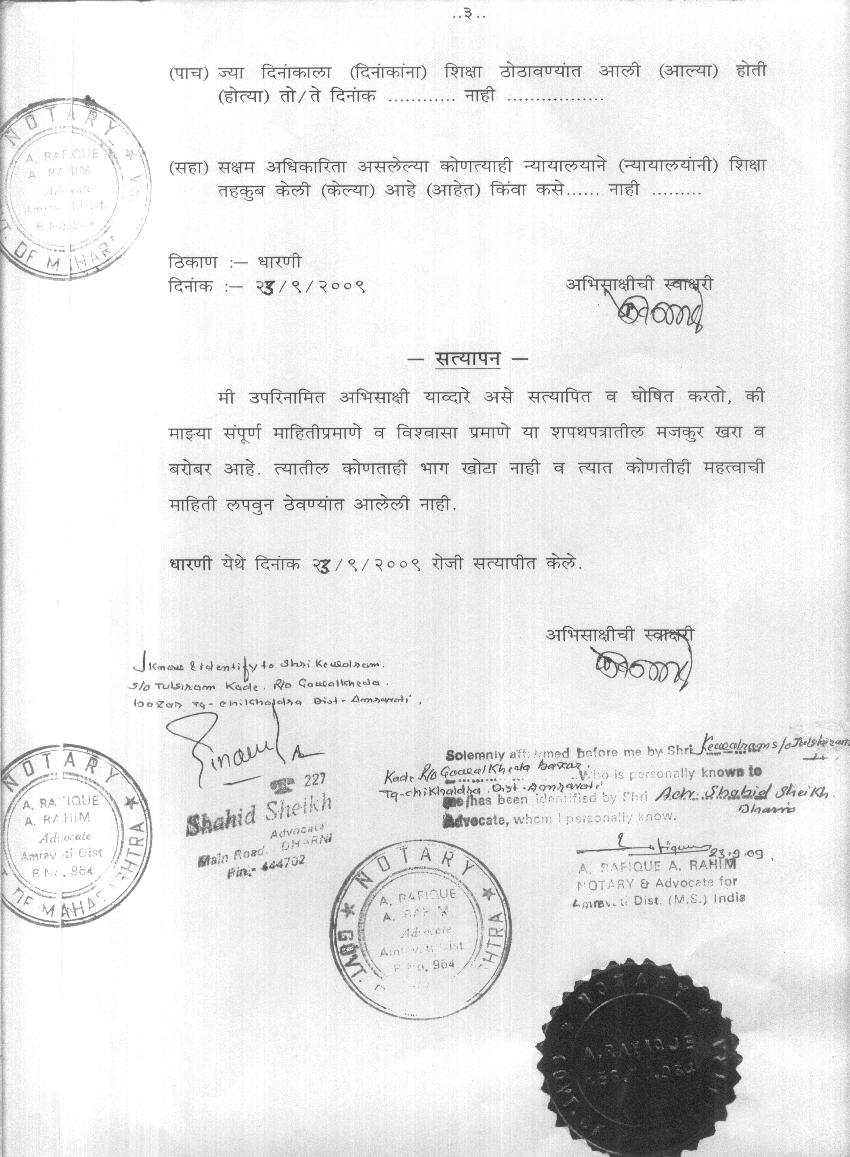 ..३..
(पाच) ज्या दिनांकाला (दिनांकांना) शिक्षा ठोठावण्यांत आली (आल्या) होती
(होत्या) तो/ते दिनांक ............ नाही .................
(सहा) सक्षम अधिकारिता असलेल्या कोणत्याही न्यायालयाने (न्यायालयांनी) शिक्षा
तहकुब केली (केल्या) आहे (आहेत) किंवा कसे...... नाही .........
ठिकाण :– धारणी
दिनांक :– २३/९/२००९
अभिसाक्षीची स्वाक्षरी
– सत्यापन –
मी उपरिनामित अभिसाक्षी याव्दारे असे सत्यापित व घोषित करतो, की
माझ्या संपूर्ण माहितीप्रमाणे व विश्वासा प्रमाणे या शपथपत्रातील मजकुर खरा व
बरोबर आहे. त्यातील कोणताही भाग खोटा नाही व त्यात कोणतीही महत्वाची
माहिती लपवुन ठेवण्यांत आलेली नाही.
धारणी येथे दिनांक २३/९/२००९ रोजी सत्यापीत केले.
अभिसाक्षीची स्वाक्षरी
I Know & identify to Shri Kewalram.
S/o Tulsiram Kade. R/o Gaualkheda
bazar Tq-Chikhaldra Dist-Amravati.
☎ 227
Shahid Sheikh
Advocate
Main Road, DHARNI
Pin.- 444702
Solemnly affirmed before me by Shri Kewalram s/o Tulshiram
Kade R/o Gaualkheda bazar. Who is personally known to
Tq-chikhaldra. Dist-Amravati
me/has been identified by Shri Adv. Shahid Sheikh.
Dharni
Advocate, whom I personally know.
23.9.09
A. RAFIQUE A. RAHIM
NOTARY & Advocate for
Amravati Dist. (M.S.) India
NOTARY
A. RAFIQUE
A. RAHIM
Advocate
Amravati Dist
R No. 964
GOVT. OF MAHARASHTRA
NOTARY
A. RAFIQUE
A. RAHIM
Advocate
Amravati Dist
R No. 964
GOVT. OF MAHARASHTRA
NOTARY
A. RAFIQUE
A. RAHIM
Advocate
Amravati Dist
R No. 964
NOTARY
A. RAFIQUE